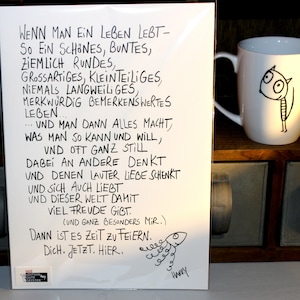 WENN MAN EIN LEBEN LEBT –
SO EIN SCHÖNES, BUNTES,
ZIEMLICH RUNDES,
GROSSARTIGES, KLEINTEILIGES,
NIEMALS LANGWEILIGES,
MERKWÜRDIG BEMERKENSWERTES
LEBEN...
... UND MAN DANN ALLES MACHT,
WAS MAN SO KANN UND WILL,
UND OFT GANZ STILL
DABEI AN ANDERE DENKT
UND DENEN LAUTER LIEBE SCHENKT
UND SICH AUCH LIEBT
UND DIESER WELT DAMIT
VIEL FREUDE GIBT.
(UND GANZ BESONDERS MIR..)
DANN IST ES ZEIT ZU FEIERN.
DICH. JETZT. HIER.